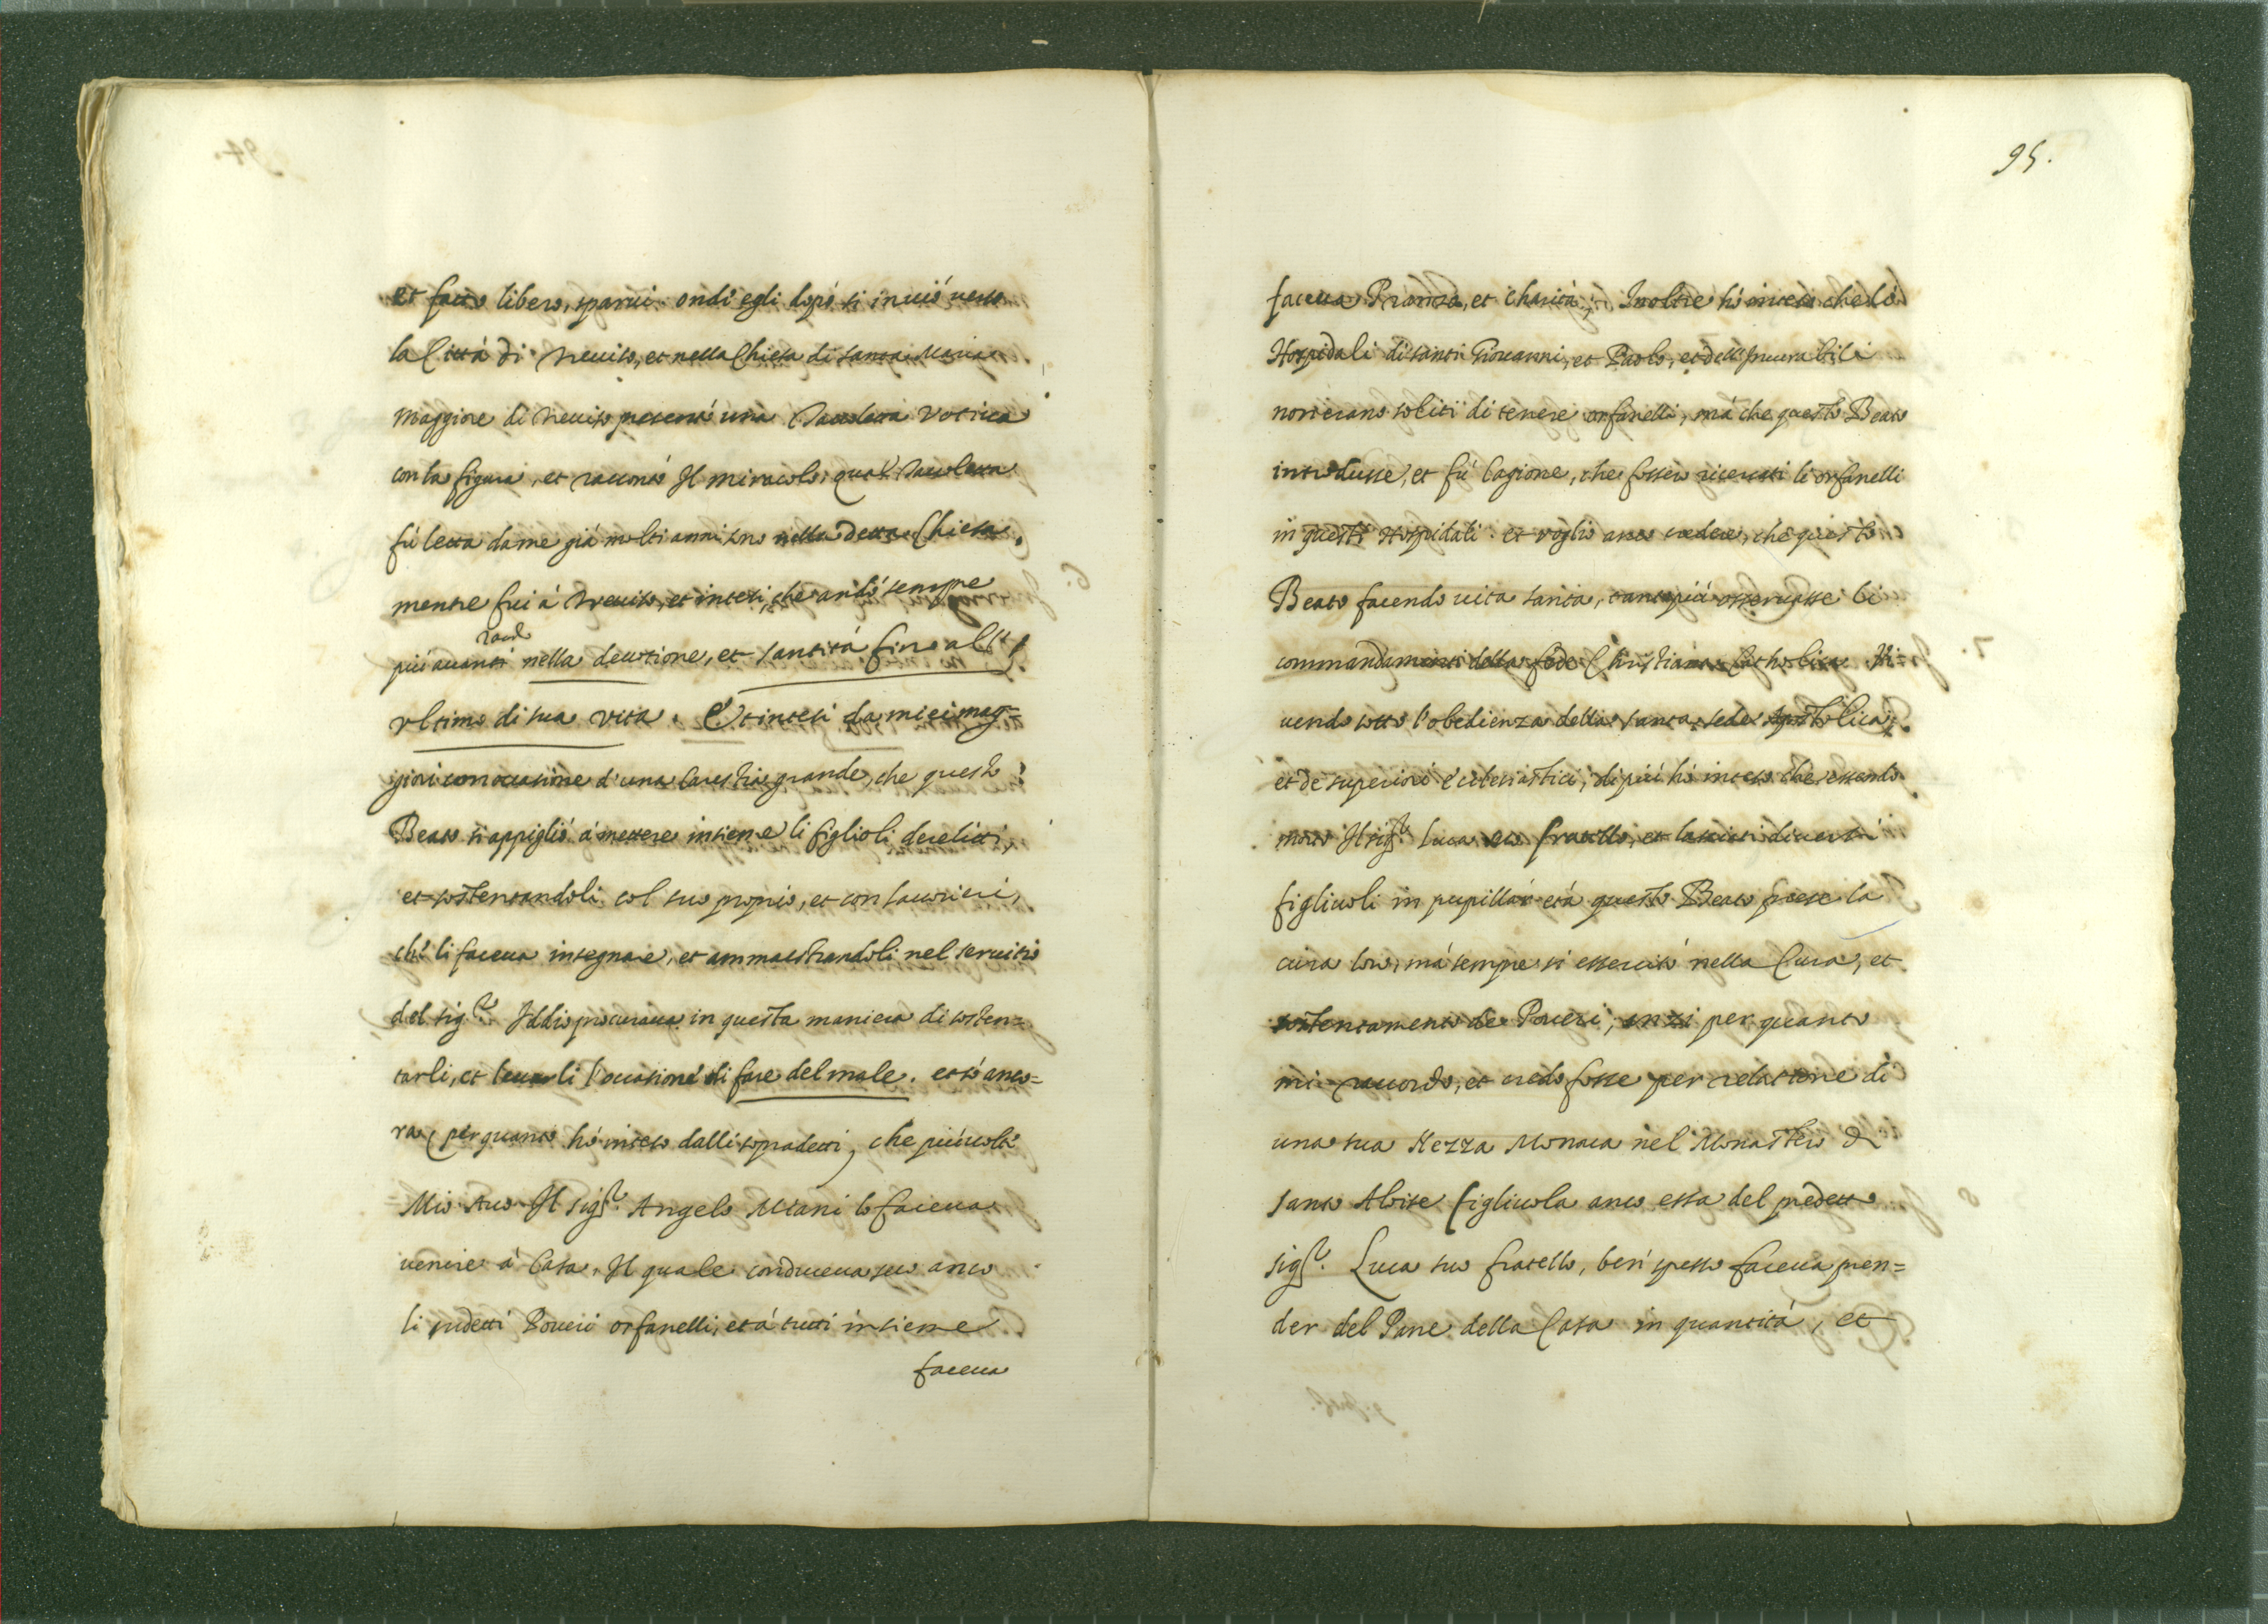 et fatto libero, sparui. ond'egli dopò si inuiò uerso
la Città di Treuiso, et nella Chiesa di santa Maria
Maggiore di Treuiso presentò una Tauoletta Votiua
con la figura, et raccontò Il miracolo; qual Tauoletta
fù letta da me già molti anni sono nella detta Chiesa,
mentre fui à Treuiso, et intesi, che andò sempre
più auanti nella deuotione, et santità fino all'
vltimo di sua vita. Et intesi da miei mag=
giori con occasione d'una Carestia grande, che questo
Beato si appigliò à mettere insieme li figlioli derelitti,
et sostentandoli col suo proprio, et con lauorieri,
che li faceua insegnare, et ammaestrandoli nel seruitio
del sig.r Iddio procuraua in questa maniera di sosten=
tarli, et leuarli l'occasione di fare del male. et sò anco=
ra, per quanto hò inteso dalli sopradetti, che più uolte
Mio Auo Il Sig.r Angelo Miani lo faceua
uenire à Casa, Il quale conduceua seco anco
li sudetti Poueri orfanelli, et à tutti insieme
faceua
95.
faceua Pranzo, et Charità; Inoltre hò inteso che li
Hospidali di santi Giouanni, et Paolo, et dell'Incurabili
non erano soliti di tenere orfanelli, mà che questo Beato
introdusse, et fù Cagione, che fossero riceuuti li orfanelli
in questi Hospidali. et voglio anco credere, che questo
Beato facendo uita santa, tanto più osseruasse li
commandamenti della fede Christiana Catholica Vi=
uendo sotto l'obedienza della santa sede Apostolica,
et de superiori Ecclesiastici; di più hò inteso che essendo
morto Il sig.r Luca suo fratello, et lasciati diuersi
figliuoli in pupillar età questo Beato prese la
cura loro, mà sempre si essercitò nella Cura, et
sostentamento de Poueri; anzi per quanto
mi raccordo, et credo fosse per relatione di
una sua Nezza Monaca nel Monastero di
Santo Aluise figliuola anco essa del predetto
sig.r Luca suo fratello, ben spesso faceua pren=
der del Pane della Casa in quantità, et